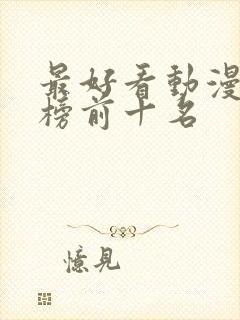 最好看動漫
榜前十名
憶見